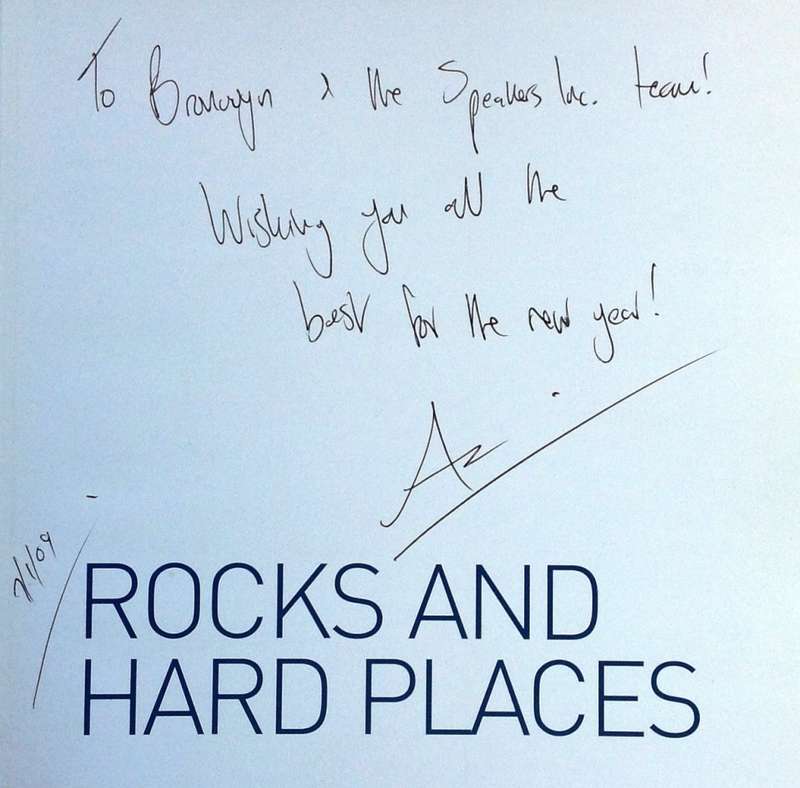 To Bronwyn & the Speakers Inc. team!
Wishing you all the
best for the new year!
ROCKS AND
HARD PLACES